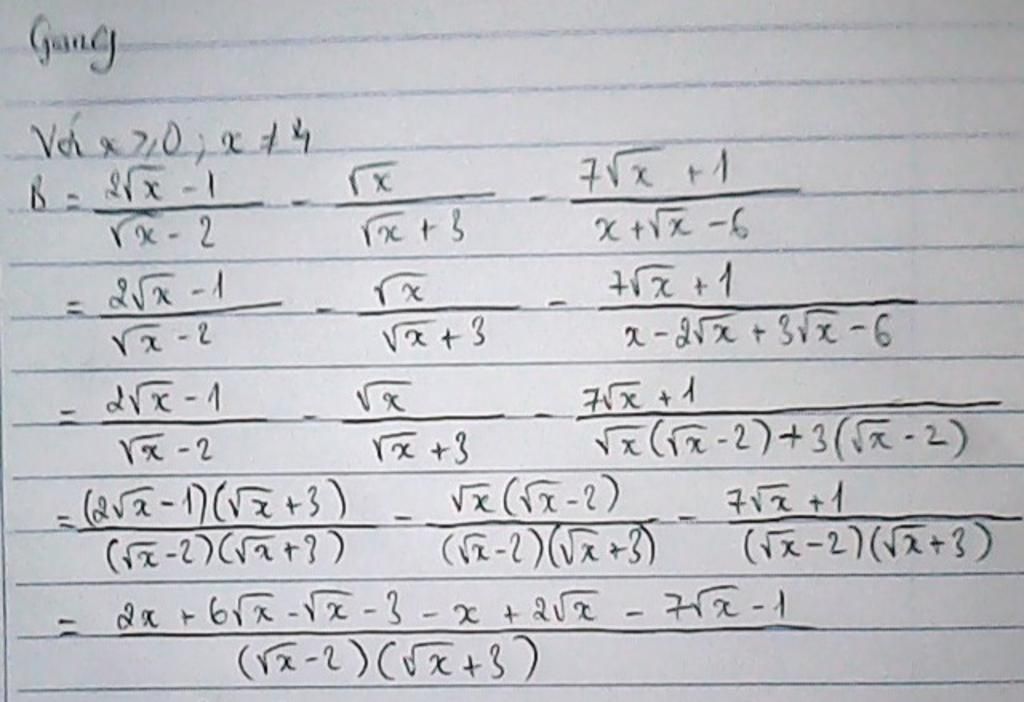 Với x ≥ 0; x ≠ 4
B = (2√x - 1)/(√x - 2) - √x/(√x + 3) - (7√x + 1)/(x + √x - 6)
= (2√x - 1)/(√x - 2) - √x/(√x + 3) - (7√x + 1)/(x - 2√x + 3√x - 6)
= (2√x - 1)/(√x - 2) - √x/(√x + 3) - (7√x + 1)/(√x(√x - 2) + 3(√x - 2))
= ((2√x - 1)(√x + 3))/((√x - 2)(√x + 3)) - (√x(√x - 2))/((√x - 2)(√x + 3)) - (7√x + 1)/((√x - 2)(√x + 3))
= (2x + 6√x - √x - 3 - x + 2√x - 7√x - 1)/((√x - 2)(√x + 3))